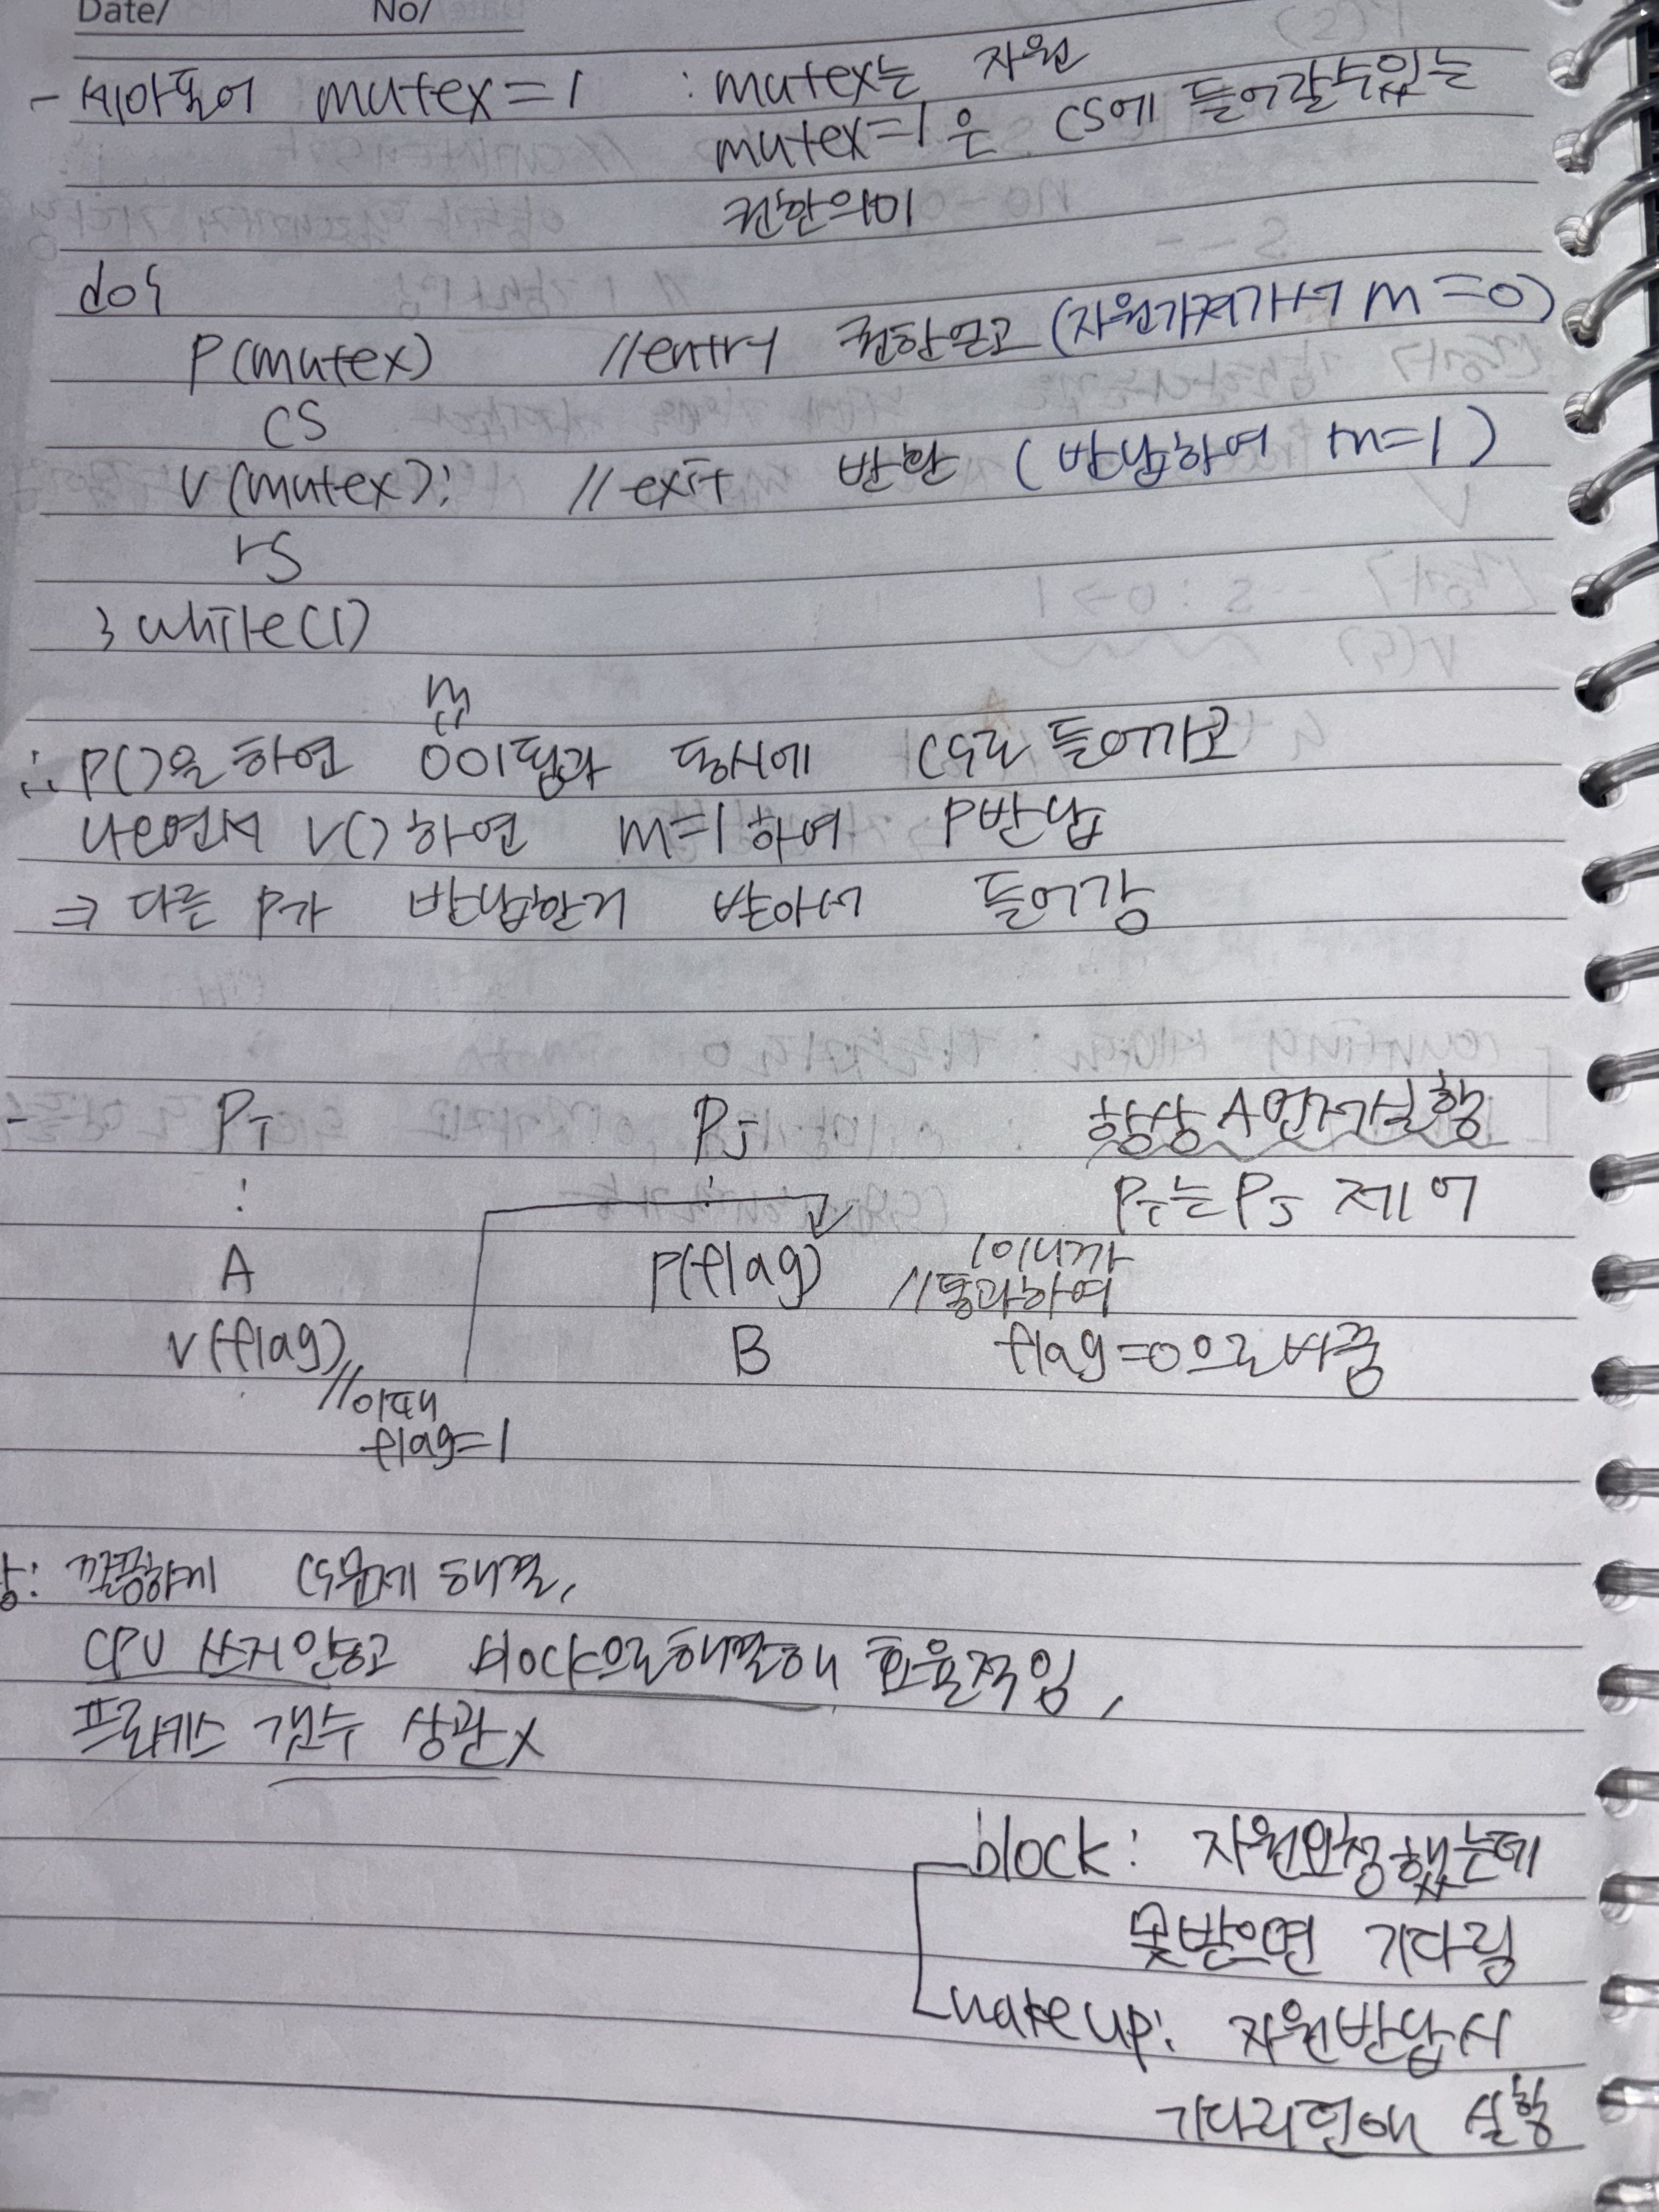 Date/ No/
- 세마포어 mutex=1 : mutex는 자원
mutex=1은 CS에 들어갈수있는
권한의미
do{
P(mutex) //entry 권한얻고 (자원가져가서 m=0)
CS
V(mutex); //exit 반환 (반납하여 m=1)
rS
} while(1)
m
∴ P()을 하면 0이됨과 동시에 CS로 들어가고
나오면서 V()하면 m=1하여 P반납
⇒ 다른 P가 반납한거 받아서 들어감
- Pi Pj 항상 A먼저실행
: : Pi는 Pj 제어
A P(flag) //1이니까 통과하여
V(flag) B flag=0으로바꿈
//이때
flag=1
장: 깔끔하게 CS문제 해결,
CPU 쓰지않고 block으로해결해 효율적임,
프로세스 갯수 상관x
block: 자원요청했는데
못받으면 기다림
wake up: 자원반납시
기다리던애 실행